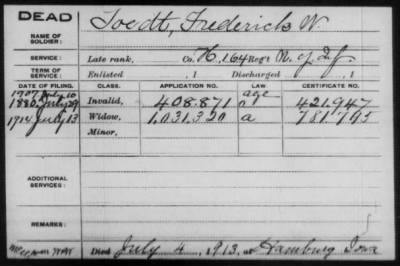 DEAD
NAME OF SOLDIER: Toedt, Frederick W.
SERVICE: Late rank, Co. H, 164 Reg't N.Y. Inf
TERM OF SERVICE: Enlisted , 1 Discharged , 1
DATE OF FILING. CLASS. APPLICATION NO. LAW. CERTIFICATE NO.
1907 July 10 age
1880, July 29 Invalid, 408.871 421.947
1914 July 13 Widow, 1,031.320 a 781.795
Minor,
ADDITIONAL SERVICES:
REMARKS:
Died July 4, 1913, at Hamburg Iowa